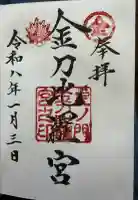 奉拝
金刀比羅宮
虎ノ門
令和八年一月三日